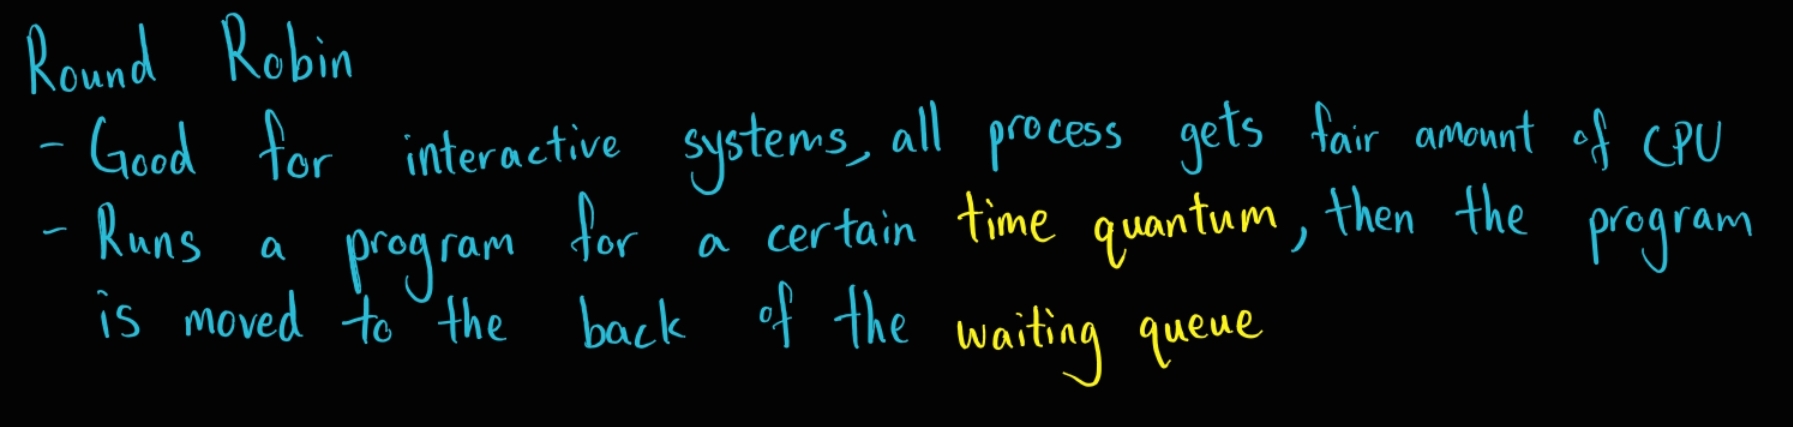 Round Robin
- Good for interactive systems, all process gets fair amount of CPU
- Runs a program for a certain time quantum, then the program
is moved to the back of the waiting queue